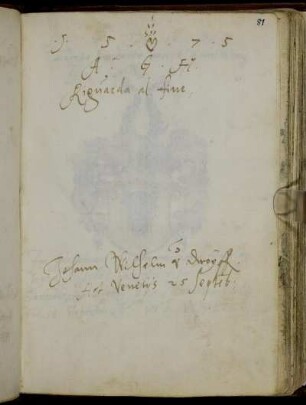 81
· 1 · 5 · 7 · 5
A · G · H
Riguarda al fine
Johann Wilhelm
Venetijs 25 Septeb.